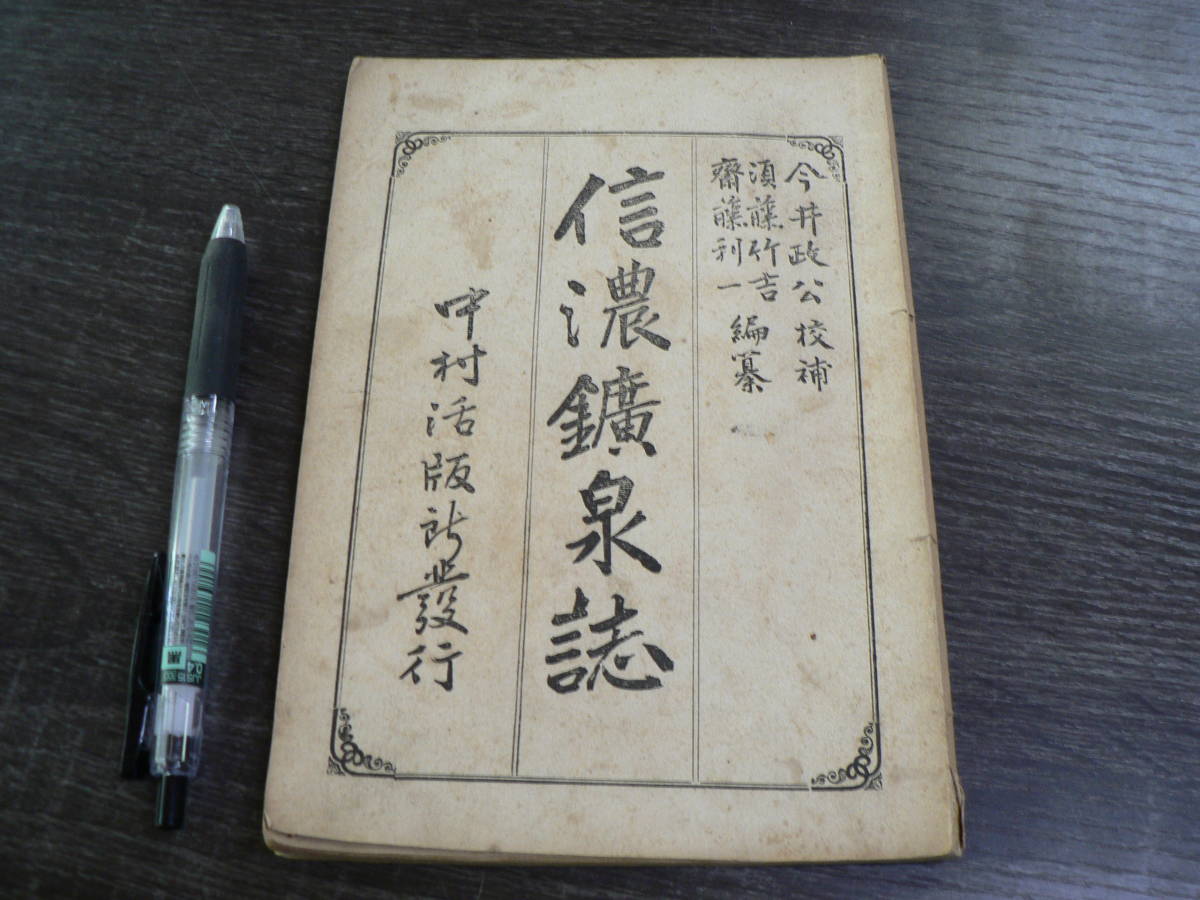 今井政公校補
須藤竹吉
齋藤利一
編纂
信濃鑛泉誌
中村活版所發行
0.4